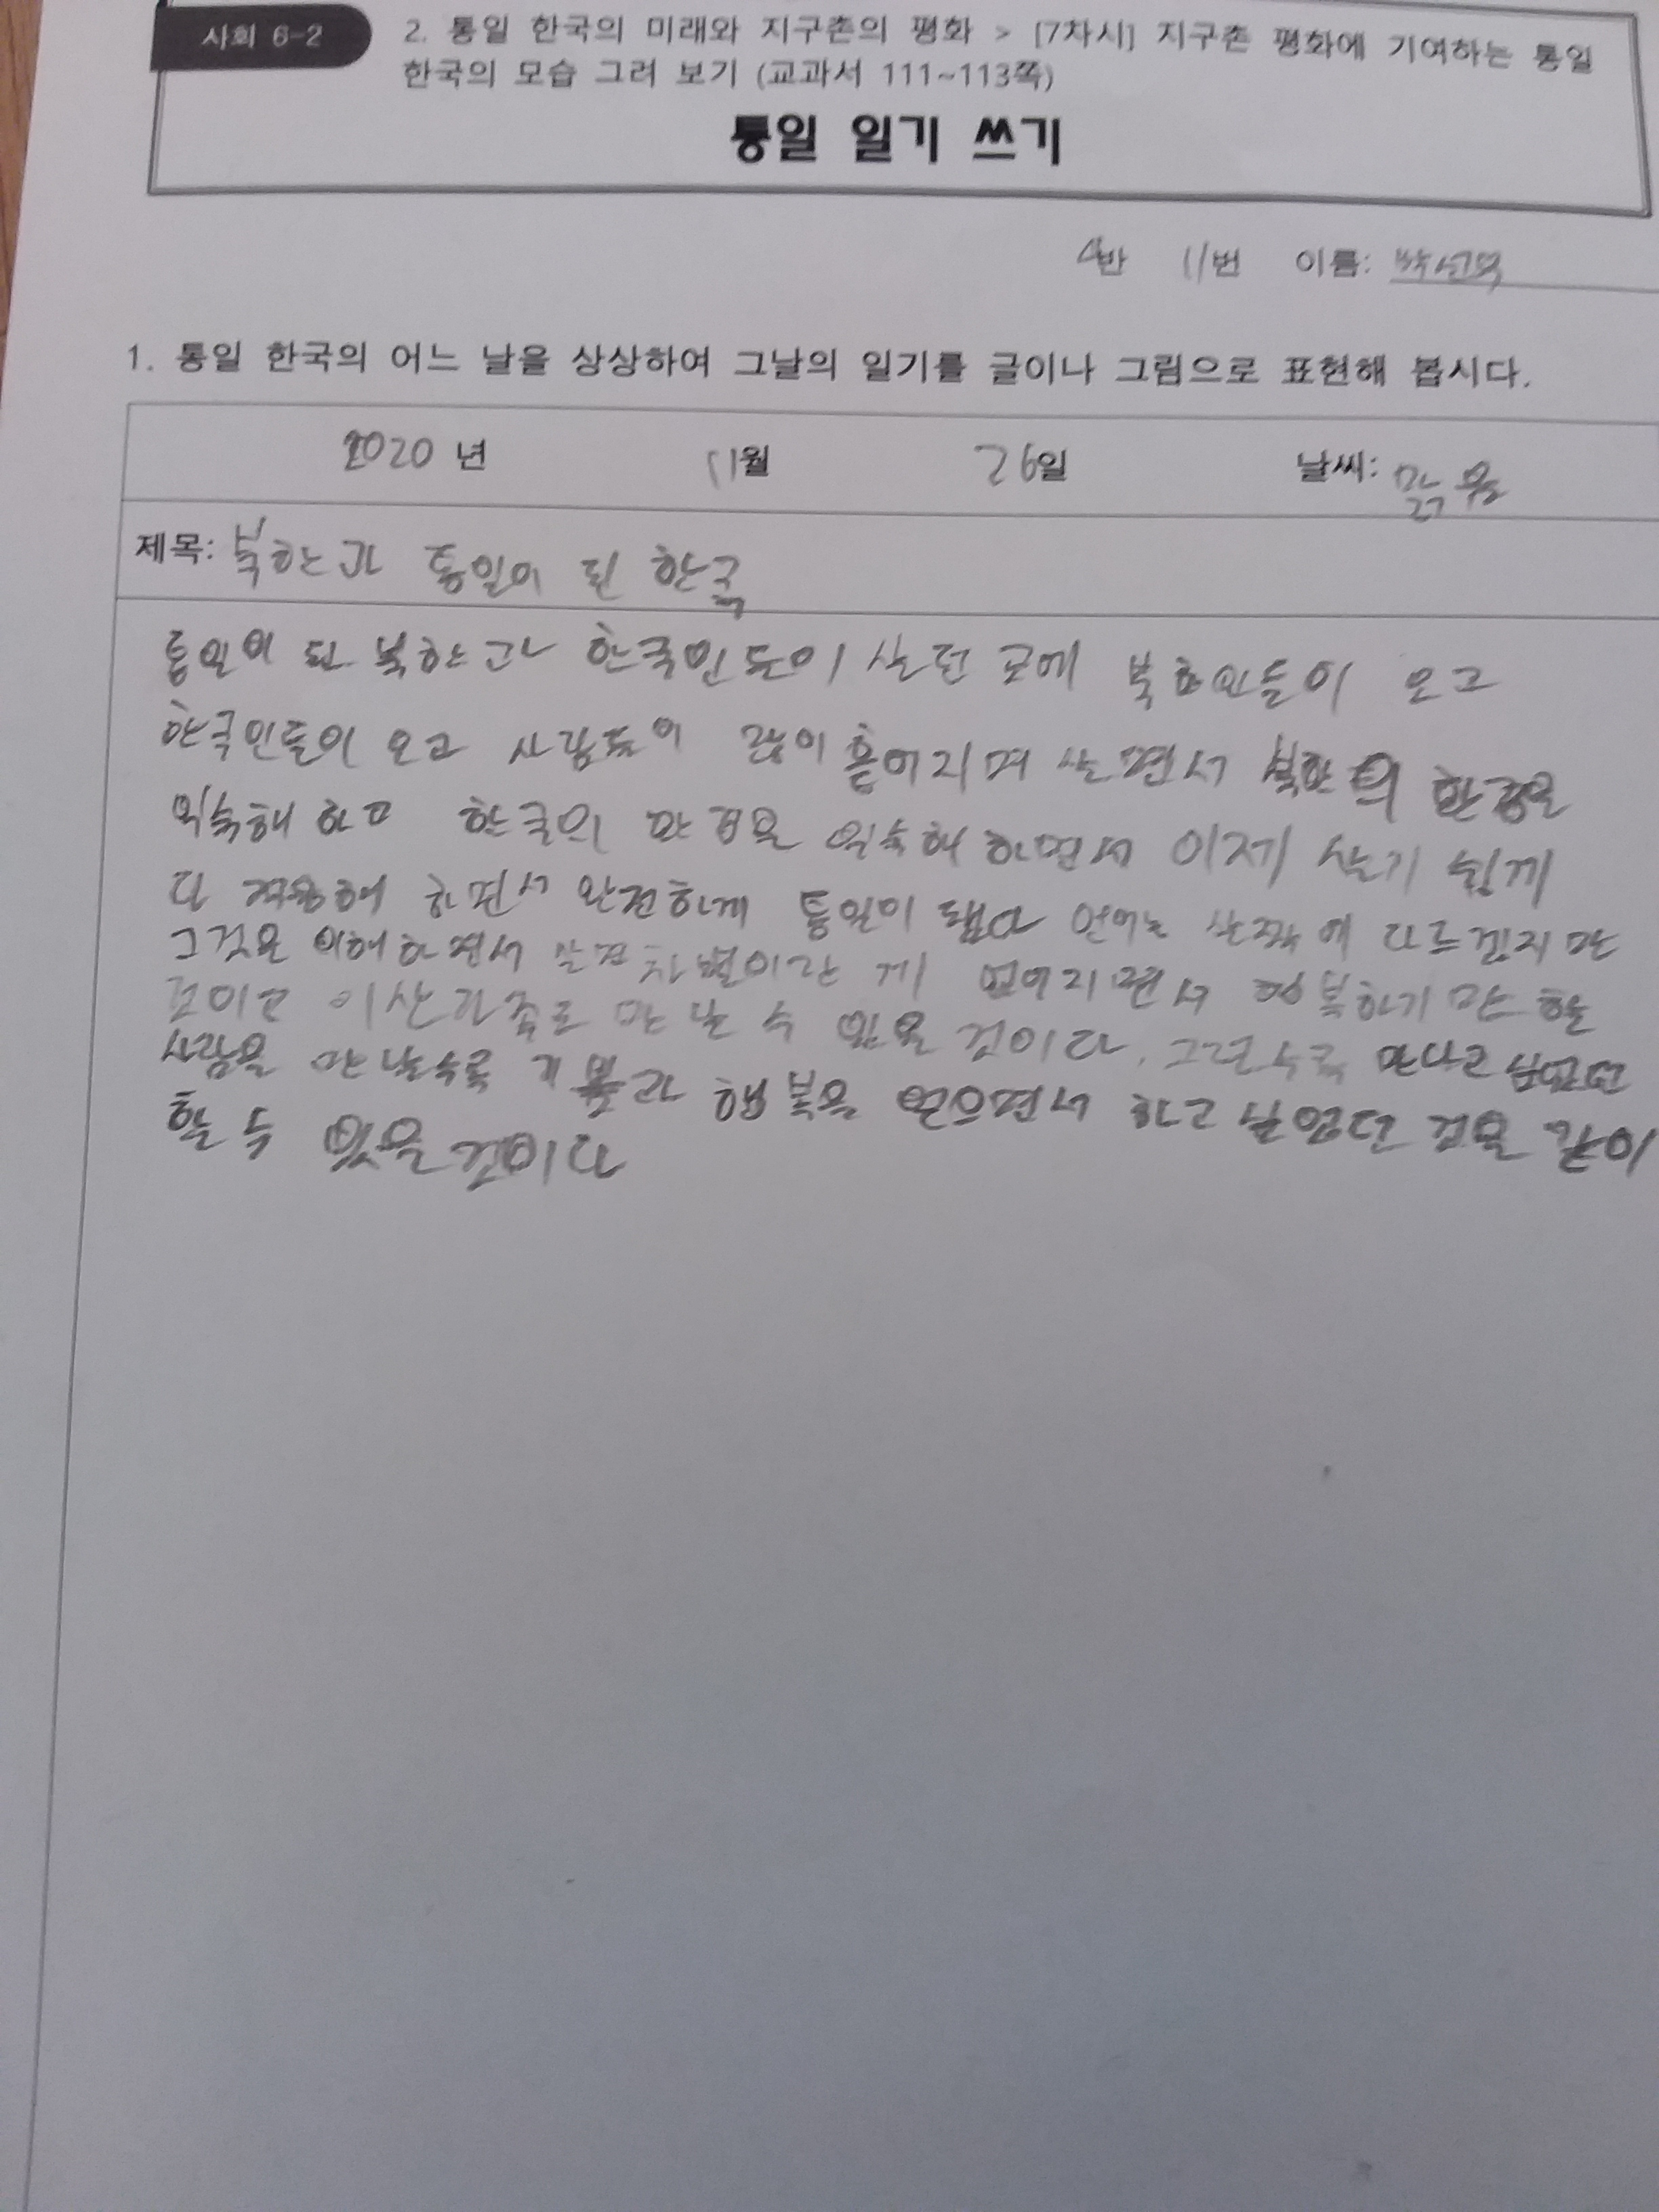 사회 6-2
2. 통일 한국의 미래와 지구촌의 평화 > [7차시] 지구촌 평화에 기여하는 통일
한국의 모습 그려 보기 (교과서 111~113쪽)
통일 일기 쓰기
4반 11번 이름:
1. 통일 한국의 어느 날을 상상하여 그날의 일기를 글이나 그림으로 표현해 봅시다.
2020 년 11월 26일 날씨: 맑음
제목: 북한과 통일이 된 한국
통일이 된 북한과 한국인들이 살던 곳에 북한인들이 오고
한국인들이 오고 사람들이 많이 흩어지며 살면서 북한의 환경을
익숙해 하고 한국의 환경을 익숙해 하면서 이제 살기 쉽게
다 적응해 하면서 완전하게 통일이 됐다 언어는 살짝에 다르겠지만
그것을 이해하면서 차별이란 게 없어지면서 행복하기만 할
것이고 이산가족도 만날 수 있을 것이다. 그럴수록 만나고 싶었던
사람을 만날수록 기쁨과 행복을 얻으면서 하고 싶었던 것을 같이
할 수 있을 것이다